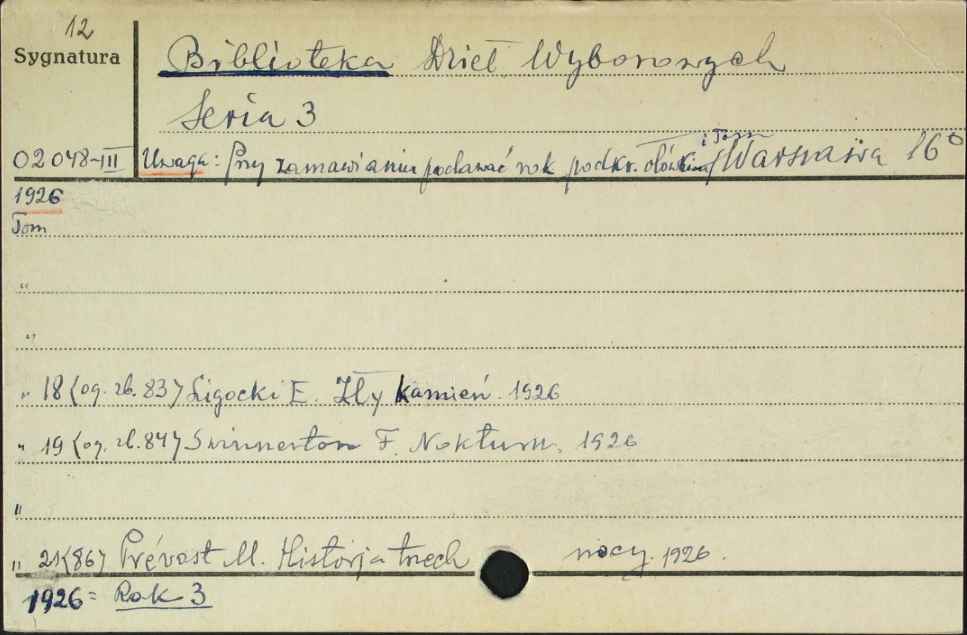 12
Sygnatura
Biblioteka Dzieł Wyborowych
Seria 3
i Tom
02048-III Uwaga: Przy zamawianiu podawać rok podkr. ołówkiem Warszawa 16°
1926
Tom
"
"
" 18 (og. zb. 83) Ligocki E. Zły kamień. 1926
" 19 (og. zb. 84) Swinnerton F. Nokturn. 1926
"
" 21 (86) Prévost M. Historja trzech nocy. 1926.
1926 = Rok 3